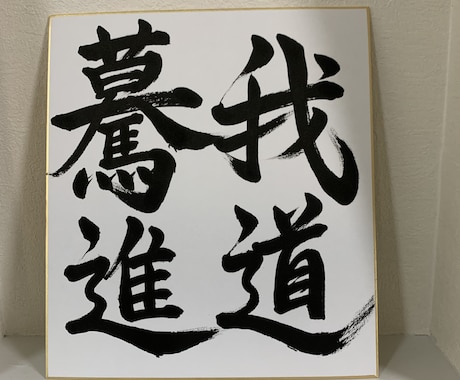 我道
驀進